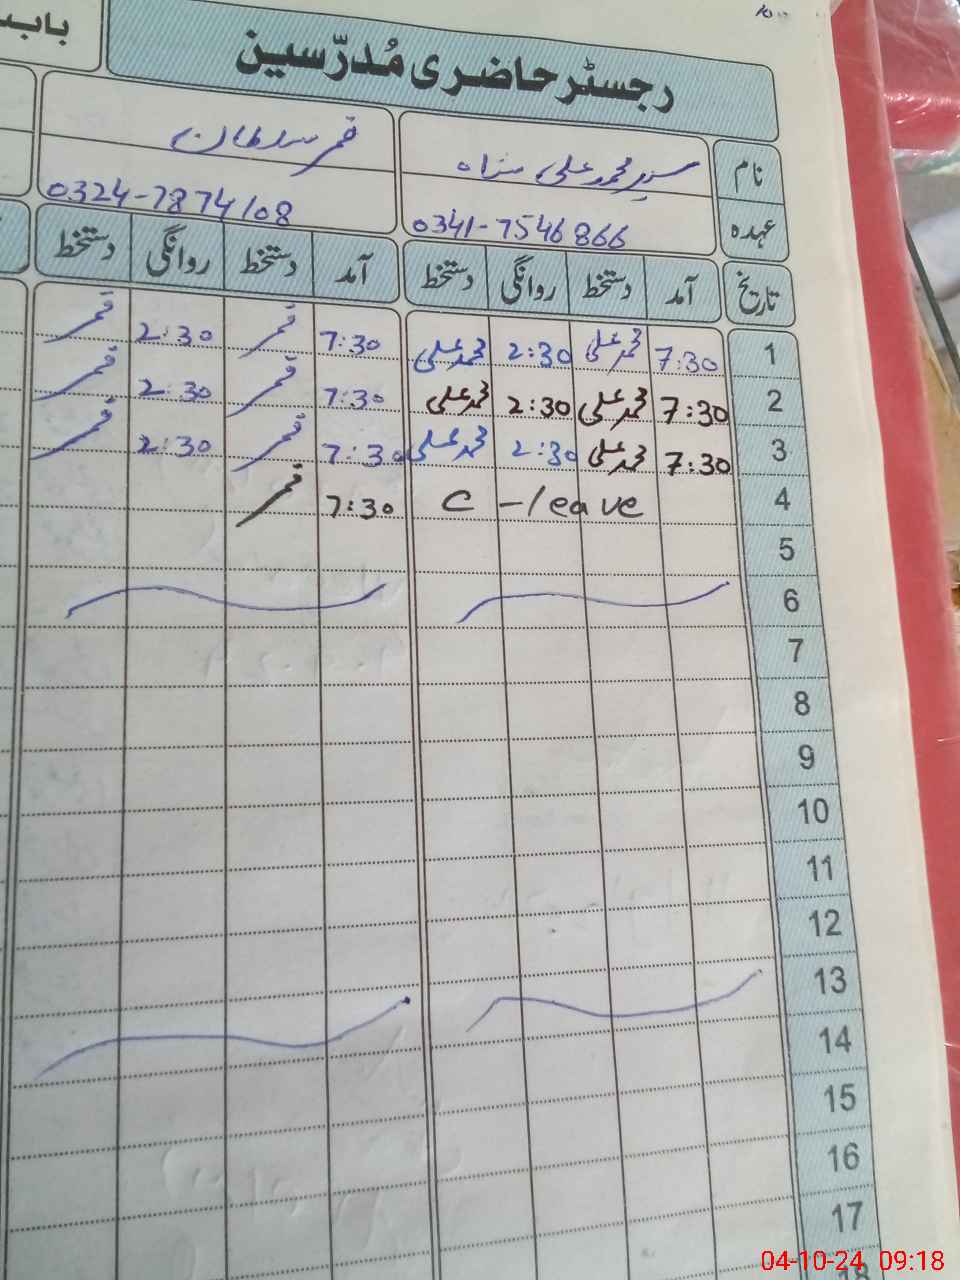 رجسٹر حاضری مُدرّسین
باب
نام سید محمد علی شاہ قمر سلطان
عہدہ 0341-7546866 0324-7874108
تاریخ آمد دستخط روانگی دستخط آمد دستخط روانگی دستخط
1 7:30 محمد علی 2:30 محمد علی 7:30 قمر 2:30 قمر
2 7:30 محمد علی 2:30 محمد علی 7:30 قمر 2:30 قمر
3 7:30 محمد علی 2:30 محمد علی 7:30 قمر 2:30 قمر
4 C-leave 7:30 قمر
5
6
7
8
9
10
11
12
13
14
15
16
17
18
04-10-24 09:18